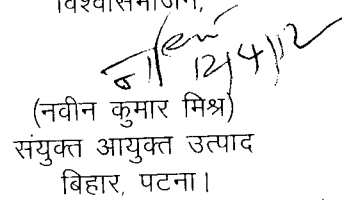 विश्वासभाजन,
12/4/12
(नवीन कुमार मिश्र)
संयुक्त आयुक्त उत्पाद
बिहार, पटना।